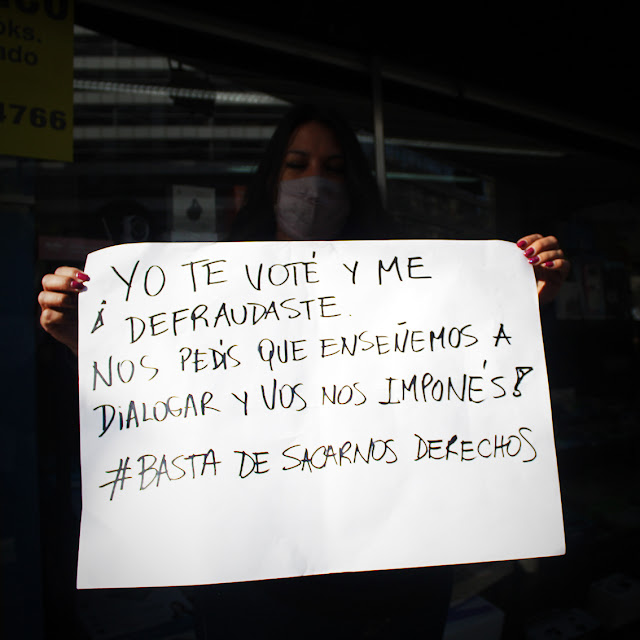 oks.
ado
4766
¡YO TE VOTÉ Y ME
DEFRAUDASTE.
NOS PEDÍS QUE ENSEÑEMOS A
DIALOGAR Y VOS NOS IMPONÉS!
#BASTA DE SACARNOS DERECHOS